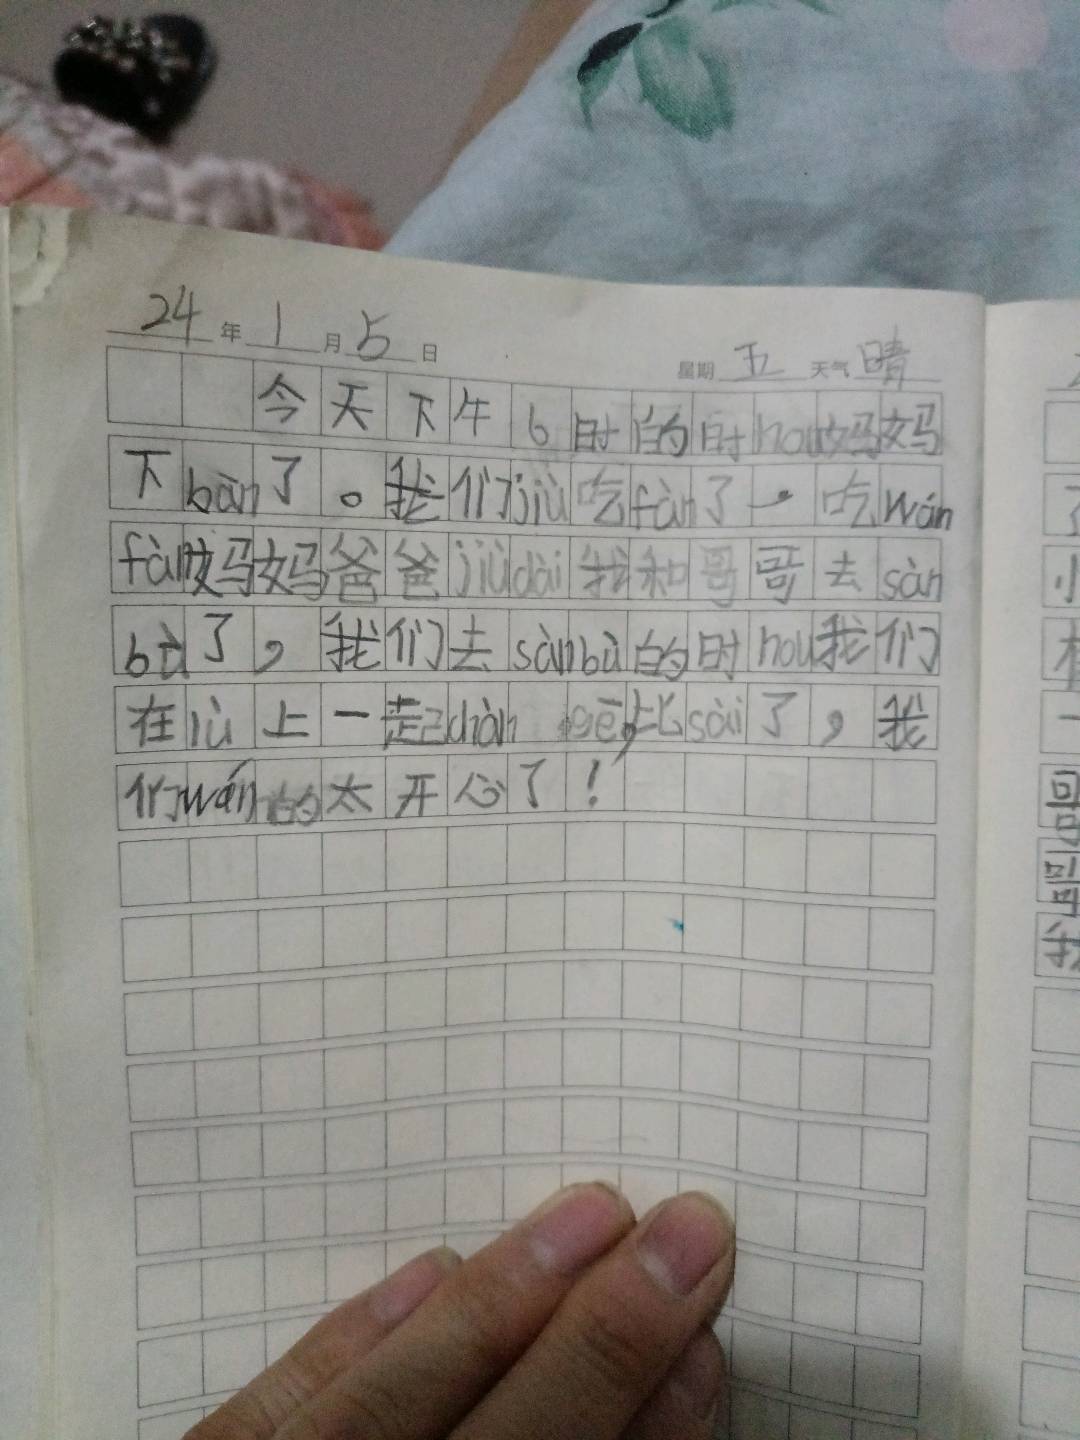 24年1月5日 星期五 天气晴
今天下午6时的时hou妈妈
下bàn了。我们jiù吃fàn了,吃wán
fàn妈妈爸爸jiùdài我和哥哥去sàn
bù了,我们去sànbù的时hou我们
在lù上一起chàn gē,比sài了,我
们wán的太开心了!
了
小
一
哥
哥
我